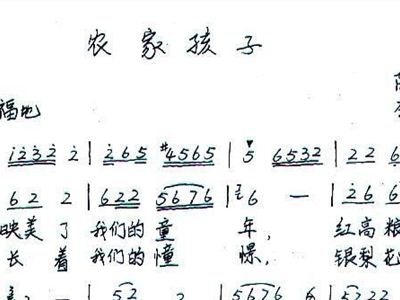 农家孩子
福地
1232 2 | 265 #4565 | 5 6532 | 22 6
6 2 2 | 622 5676 | 6 — | 26 6
映美了 我们的童 年, 红高粮
长着 我们的憧 憬, 银梨花
2 | 52 2 | 5676 6